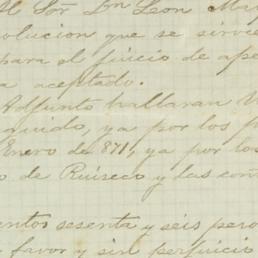 Al Sor Dn Leon Ma
solucion que se sirvie
para el juicio de ape
a aceptado.
Adjunto hallaran V
quido, ya por los p
Enero de 871, ya por los
o de Ruiseco y las con
entos sesenta y seis peso
favor y sin perjuicio